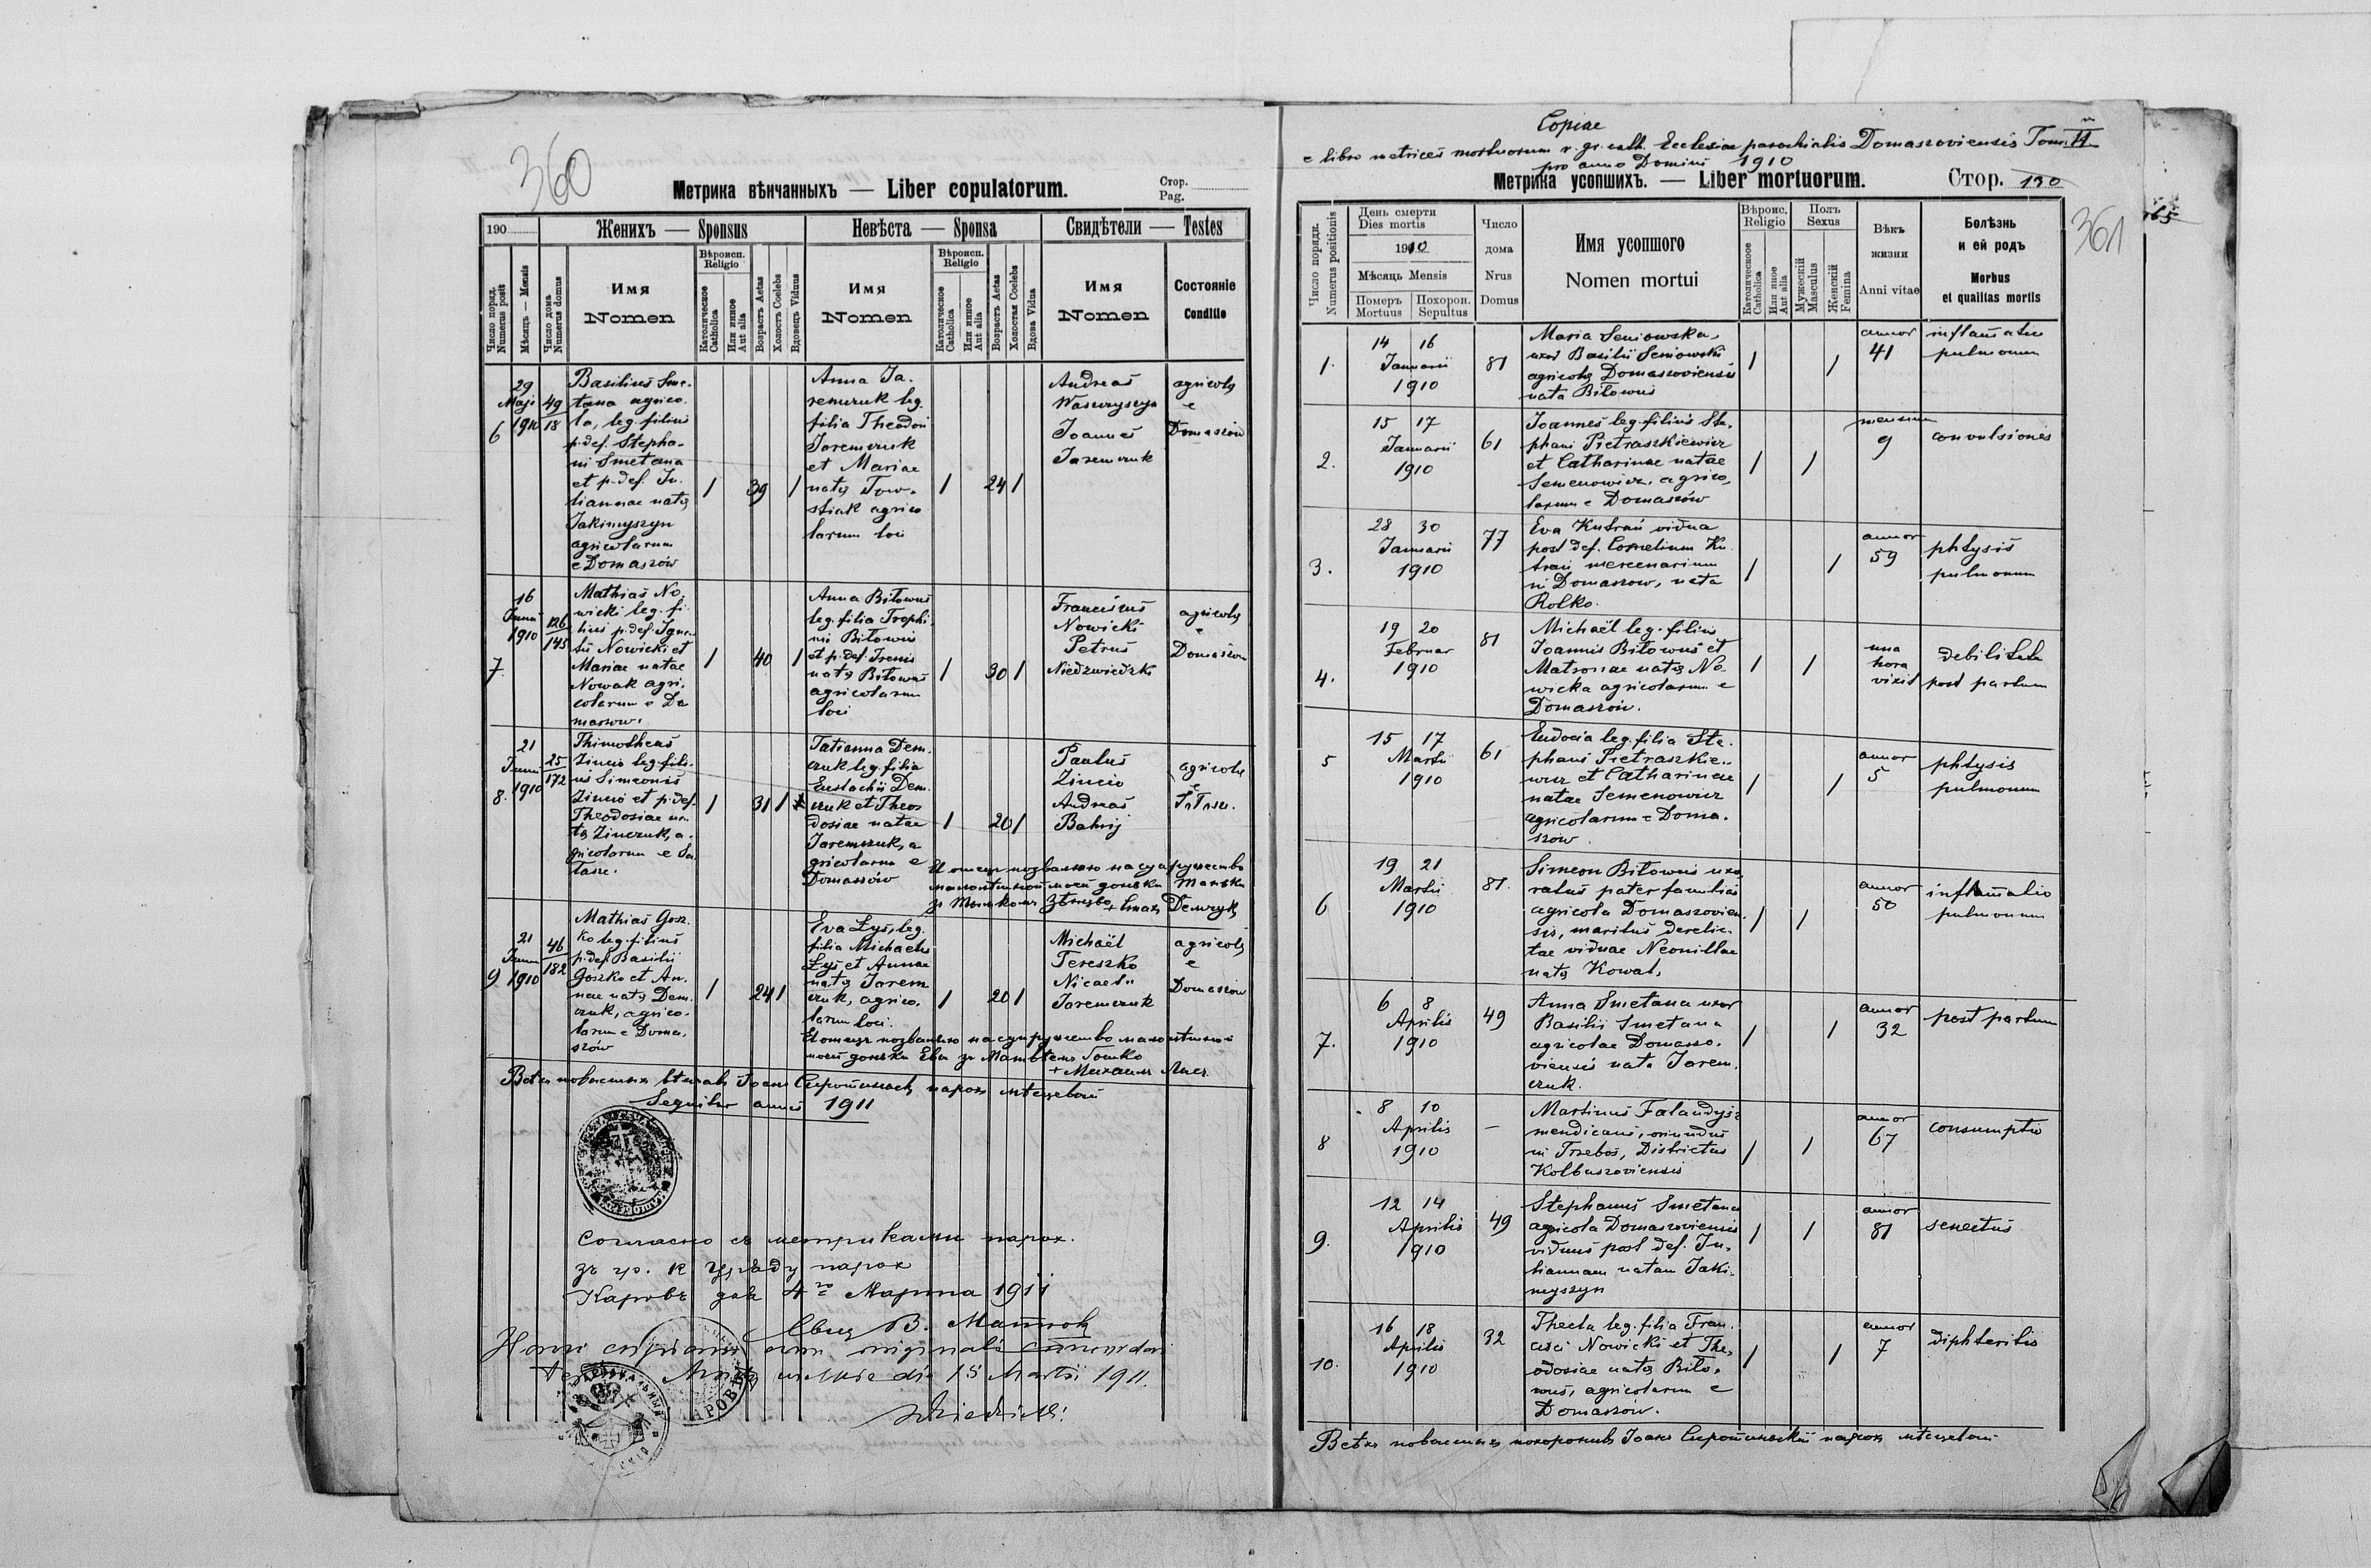 360
Метрика вѣнчанныхъ — Liber copulatorum.
Стор.
Pag.
190
Женихъ — Sponsus
Невѣста — Sponsa
Свидѣтели — Testes
Число поряд.
Numerus posit
Мѣсяцъ — Mensis
Число дома
Numerus domus
Имя
Nomen
Вѣроисп.
Religio
Католическое
Catholica
Или иное
Aut alia
Возрастъ Aetas
Холостъ Coelebs
Вдовецъ Viduus
Имя
Nomen
Вѣроисп.
Religio
Католическое
Catholica
Или иное
Aut alia
Возрастъ Aetas
Холостая Coelebs
Вдова Vidua
Имя
Nomen
Состояніе
Conditio
6
29
Maji
1910
49
18
Basilius Sme-
tana agrico-
la, leg. filius
p. def. Stepha-
ni Smetana
et p. def. Ju-
liannae natae
Jakimyszyn
agricolarum
e Domaszów
1 39 1
Anna Ja-
remczuk leg.
filia Theodori
Jaremczuk
et Mariae
natae Tow-
stiak agrico
larum loci
1 24 1
Andreas
Waszczyszyn
Joannes
Jaremczuk
agricolae
e
Domaszów
7.
16
Junii
1910
126
145
Mathias No-
wicki leg. fi-
lius p. def. Igna-
tii Nowicki et
Mariae natae
Nowak agri-
colarum e Do
maszow.
1 40 1
Anna Bitowus
leg. filia Trophi-
mi Bitowus
et p. def. Irenis
natae Bitowus
agricolarum
loci
1 30 1
Franciscus
Nowicki
Petrus
Niedzwiedzki
agricolae
e
Domaszów
8.
21
Junii
1910
25
172
Thimotheus
Zincio leg. fili-
us Simeonis
Zincio et p. def.
Theodosiae na-
tae Zinczuk, a-
gricolarum e Sa-
Tasze.
1 31 1
Tatianna Dem-
czuk leg. filia
Eustachii Dem-
czuk et Theo-
dosiae natae
Jaremczuk, a
gricolarum e
Domaszów
1 20 1
Paulus
Zincio
Andreas
Bahrij
agricolae
e
Я отецъ позваляю на супружество
малолѣтной моей доньки Таньки
зъ Тымкомъ
+ Стахъ Демчукъ
9
21
Junii
1910
46
182
Mathias Gosz-
ko leg. filius
p. def. Basilii
Goszko et An-
nae natae Dem-
czuk, agrico-
larum e Doma-
szów
1 24 1
Eva Łys, leg.
filia Michaelis
Łys et Annae
natae Jarem
czuk, agrico-
larum loci.
1 20 1
Michaël
Tereszko
Jaremczuk
agricolae
e
Domaszów
Я отецъ позваляю на супружество малолѣтной
моей доньки Евы зъ Матвѣемъ Гошко
+ Михаилъ Лысъ
Всѣхъ повысшихъ вѣнчавъ Іоанъ Сиротинскій парохъ мѣсцевый
Sequitur annus 1911
Согласно съ метриками парох.
зъ гр. к. Уряду парох
Каровъ дня 4го Марта 1911
Hanc copiam cum originali concordari
die 15 Martii 1911.
Copiae
e libro metrices mortuorum r. gr. cath. Ecclesiae parochialis Domaszoviensis Tom. II
pro anno Domini 1910
Метрика усопшихъ. — Liber mortuorum.
Стор. 190
361
165
Число порядк.
Numerus positionis
День смерти
Dies mortis
1910
Мѣсяцъ Mensis
Померъ
Mortuus
Похорон.
Sepultus
Число
дома
Nrus
Domus
Имя усопшого
Nomen mortui
Вѣроис.
Religio
Католическое
Catholica
Или иное
Aut alia
Полъ
Sexus
Мужескій
Masculus
Женскій
Femina
Вѣкъ
жизни
Anni vitae
Болѣзнь
и ей родъ
Morbus
et qualitas mortis
1.
14 16
Januarii
1910
81
Maria Seniowska,
uxor Basilii Seniowski
agricolae Domaszoviensis
nata Bitowus
1 1
annor
41
inflamatio
pulmonum
2.
15 17
Januarii
1910
61
Joannes leg. filius Ste-
phani Pietraszkiewicz
et Catharinae natae
Semenowicz, agrico-
larum e Domaszów
1 1
mensium
9
convulsiones
3.
28 30
Januarii
1910
77
Eva Kutraú vidua
post def. Cornelium Ku
traú mercenarium
in Domaszow, nata
Rolko.
1 1
annor
59
phtysis
pulmonum
4.
19 20
Februar
1910
81
Michaël leg. filius
Joannis Bitowus et
Matronae natae No-
wicka agricolarum e
Domaszów.
1 1
una
hora
vixit
debilitate
post partum
5
15 17
Martii
1910
61
Eudocia leg. filia Ste-
phani Pietraszkie-
wicz et Catharinae
natae Semenowicz
agricolarum e Doma-
szów
1 1
annor
5
phtysis
pulmonum
6
19 21
Martii
1910
81.
Simeon Bitowus uxo-
ratus pater familias
agricola Domaszovien-
sis, maritus derelic-
tae viduae Neonillae
natae Kowal,
1 1
annor
50
inflamatio
pulmonum
7.
6 8
Aprilis
1910
49
Anna Smetana uxor
Basilii Smetana
agricolae Domaszo-
viensis nata Jarem-
czuk.
1 1
annor
32
post partum
8
8 10
Aprilis
1910
—
Martinus Falandysz
mendicans, oriundus
in Trzebos, Districtus
Kolbuszoviensis
1 1
annor
67
consumptio
9.
12 14
Aprilis
1910
49
Stephanus Smetana
agricola Domaszoviensis
viduus post def. Ju-
liannam natam Jaki-
myszyn
1 1
annor
81
senectus
10.
16 18
Aprilis
1910
32
Thecla leg. filia Fran-
cisci Nowicki et The-
odosiae natae Bito-
wus, agricolarum e
Domaszów.
1 1
annor
7
diphteritis
Всѣхъ повысшихъ похоронивъ Іоанъ Сиротинскій парохъ мѣсцевый